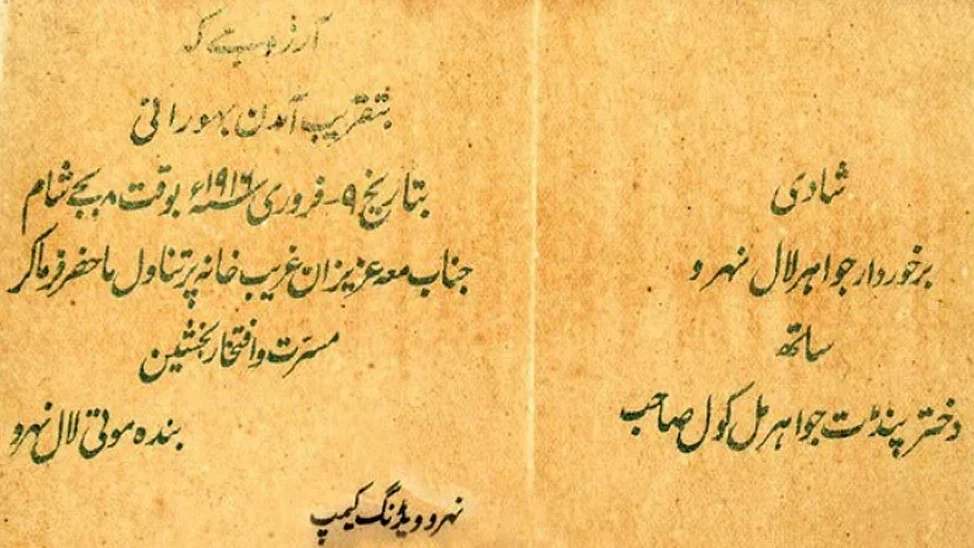 شادی
برخوردار جواہر لال نہرو
ساتھ
دختر پنڈت جواہر مل کول صاحب
آرزو ہے کہ
بتقریب آمدن بہورانی
بتاریخ ۹- فروری سنہ ۱۹۱۶ء بوقت ۸ بجے شام
جناب معہ عزیزان غریب خانہ پر تناول ماحضر فرماکر
مسرّت و افتخار بخشین
بندہ موتی لال نہرو
نہرو ویڈنگ کیمپ